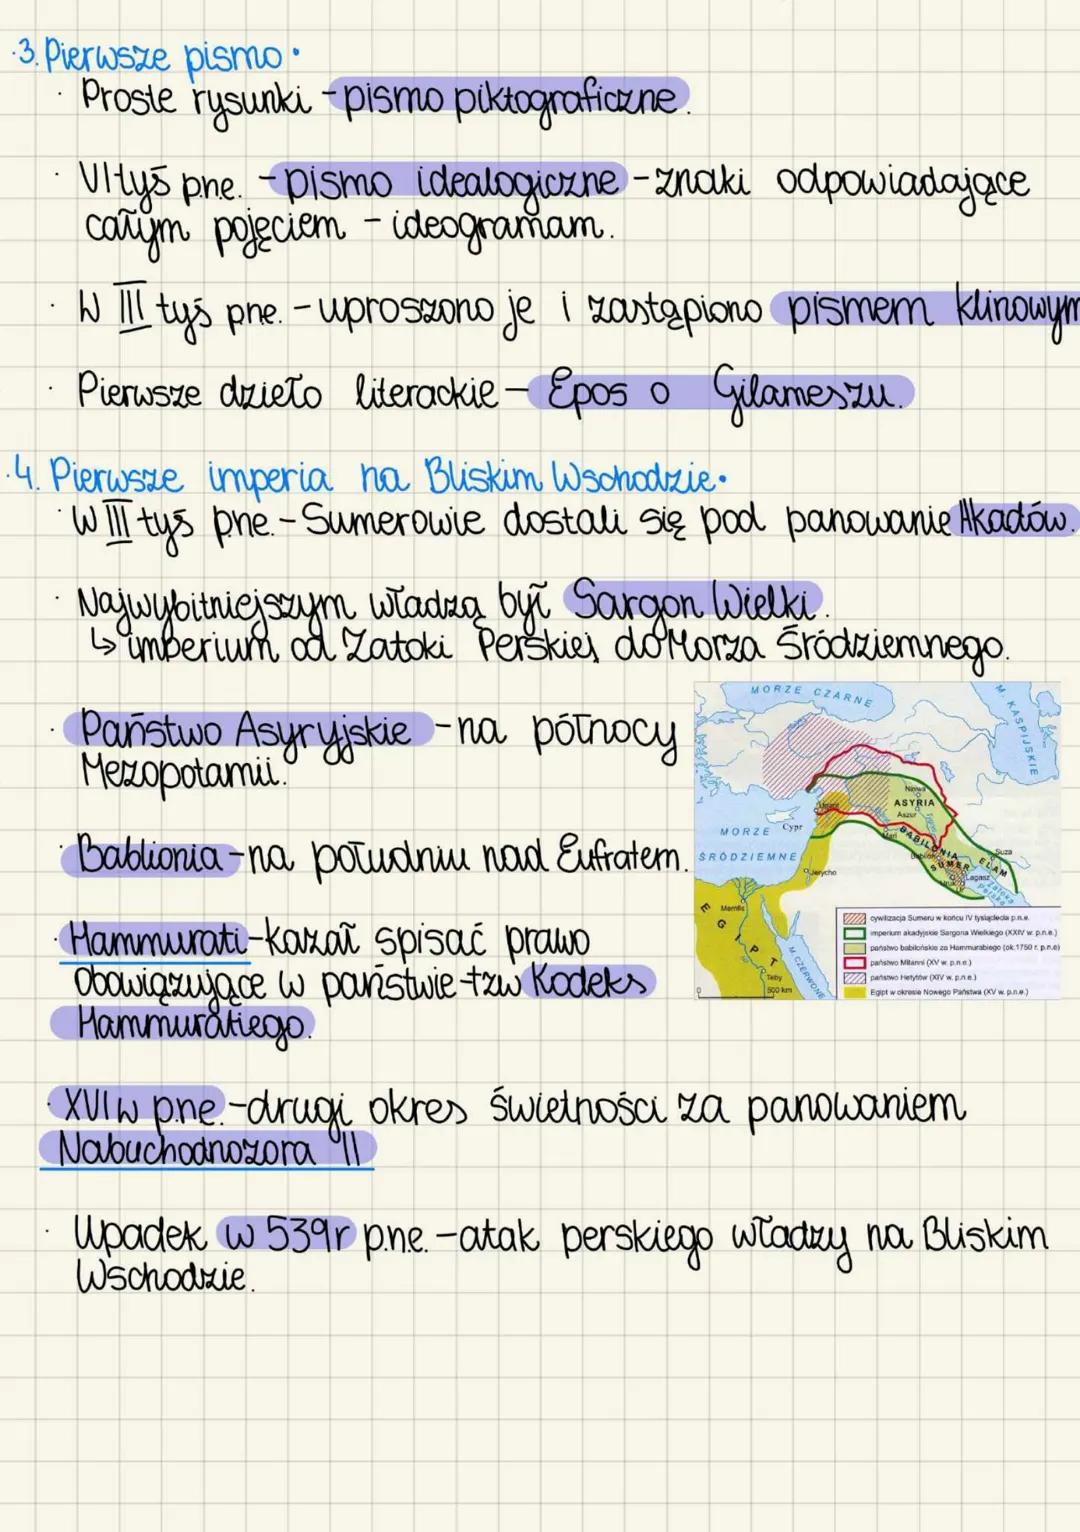 ·3. Pierwsze pismo·
· Proste rysunki - pismo piktograficzne.
· VI tyś p.n.e. - pismo idealogiczne - znaki odpowiadające
całym pojęciem - ideogramam.
· W III tyś pne. - uproszono je i zastąpiono pismem klinowym
· Pierwsze dzieło literackie - Epos o Gilameszu.
·4. Pierwsze imperia na Bliskim Wschodzie·
· W III tyś pne. - Sumerowie dostali się pod panowanie Akadów.
· Najwybitniejszym władzą był Sargon Wielki.
↳ imperium od Zatoki Perskiej do Morza Śródziemnego.
· Państwo Asyryjskie - na północy
Mezopotamii.
· Bablionia - na południu nad Eufratem.
· Hammurati - kazał spisać prawo
obowiązujące w państwie - tzw Kodeks
Hammuratiego.
· XVI w p.n.e - drugi okres świetności za panowaniem
Nabuchodnozora II
· Upadek w 539r p.n.e. - atak perskiego władzy na Bliskim
Wschodzie.
MORZE CZARNE
M. KASPIJSKIE
Niniwa
ASYRIA
Aszur
Ugarit
Mari
MORZE
Cypr
ŚRÓDZIEMNE
BABILONIA
Babilon
SUMER
ELAM
Suza
Lagasz
Uruk
Zatoka
Perska
Jerycho
Memfis
EGIPT
Teby
M. CZERWONE
0 500 km
cywilizacja Sumeru w końcu IV tysiąclecia p.n.e.
imperium akadyjskie Sargona Wielkiego (XXIV w. p.n.e.)
państwo babilońskie za Hammurabiego (ok.1750 r. p.n.e)
państwo Mitanni (XV w. p.n.e.)
państwo Hetytów (XIV w. p.n.e.)
Egipt w okresie Nowego Państwa (XV w. p.n.e.)